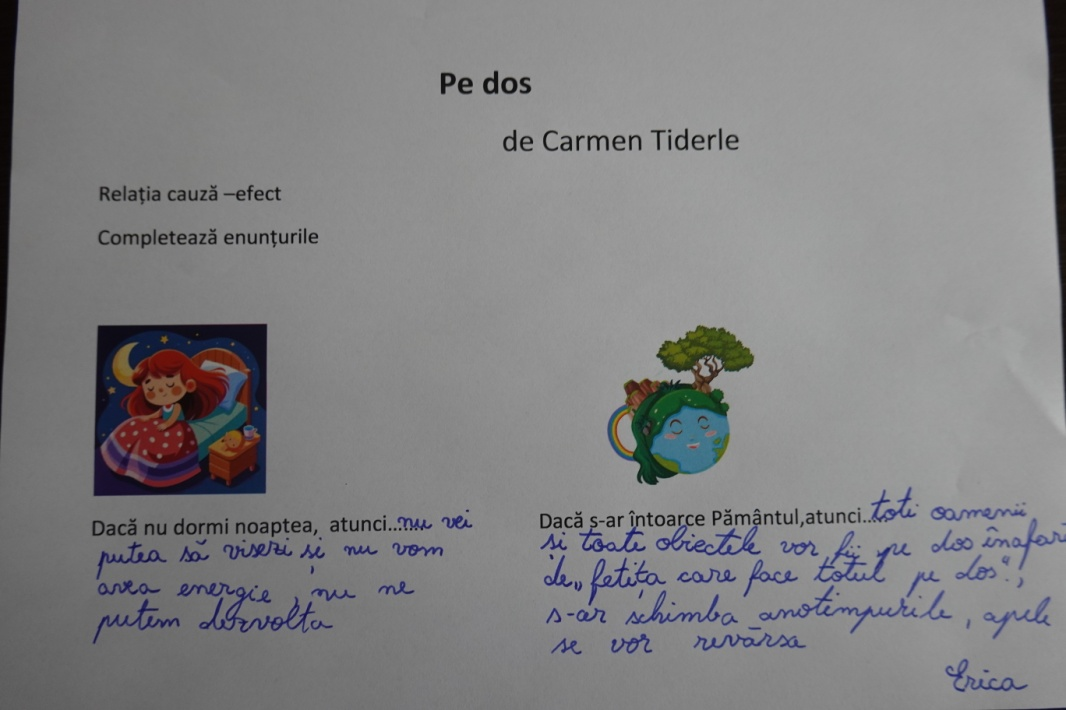 Pe dos
de Carmen Tiderle
Relația cauză –efect
Completează enunțurile
Dacă nu dormi noaptea, atunci......nu vei
putea să visezi și nu vom
avea energie, nu ne
putem dezvolta
Dacă s-ar întoarce Pământul,atunci.....toti oamenii
și toate obiectele vor fii pe dos înafară
de „fetița care face totul pe dos",
s-ar schimba anotimpurile, apele
se vor revărsa
Erica